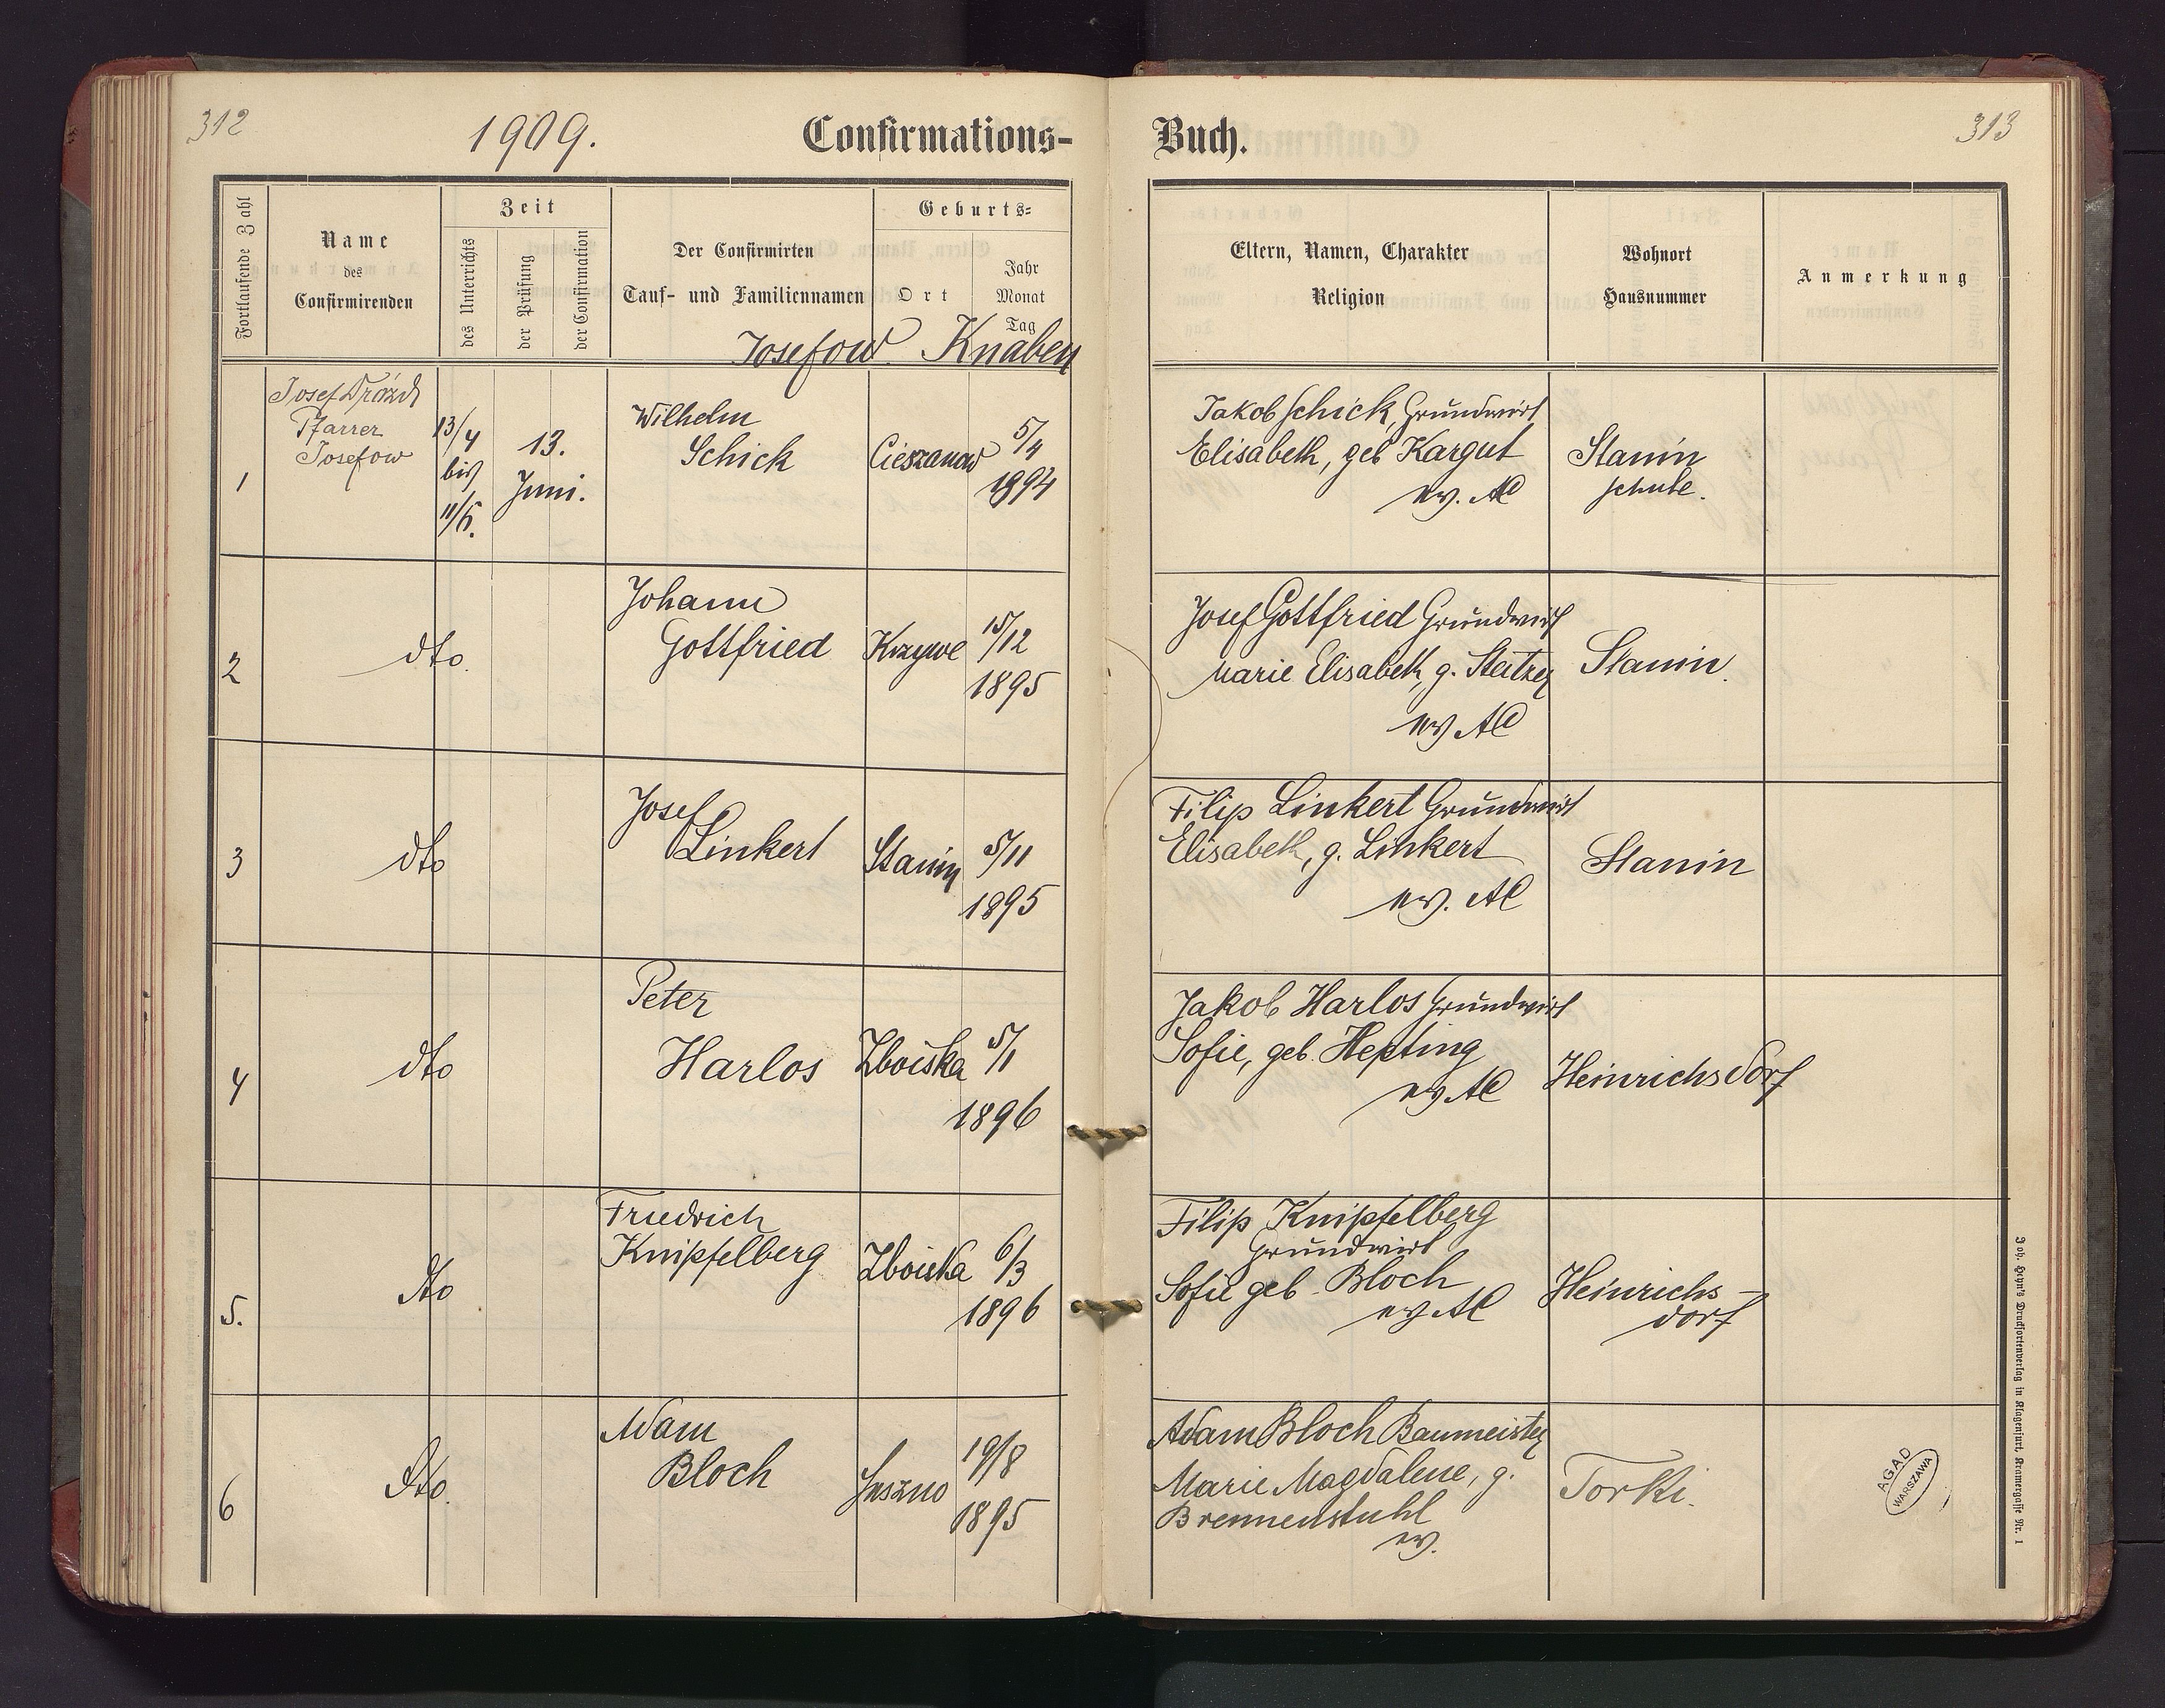 312
1909.
Confirmations-
Buch.
313
Fortlaufende Zahl
Name
des
Confirmirenden
Zeit
des Unterrichts
der Prüfung
der Confirmation
Der Confirmirten
Tauf- und Familiennamen
Geburts-
Ort
Jahr
Monat
Tag
Eltern, Namen, Charakter
Religion
Wohnort
Hausnummer
Anmerkung
Josefow Knaben
1
Josef Drózd
Pfarrer
Josefow
13/4
bis
11/6.
13.
Juni.
Wilhelm
Schick
Cieszanow
5/4
1894
Jakob Schick, Grundwirt
Elisabeth, geb Kargut
ev. AC
Stanin
schule.
2
dto.
Johann
Gottfried
Krzywe
15/12
1895
Josef Gottfried Grundwirt
Marie Elisabeth, g. Steitzer
ev AC
Stanin.
3
dto
Josef
Linkert
Stanin
5/11
1895
Filip Linkert Grundwirt
Elisabeth, g. Linkert
ev. AC
Stanin
4
dto
Peter
Harlos
Zboiska
5/1
1896
Jakob Harlos Grundwirt
Sofie, geb. Hepting
ev AC
Heinrichsdorf
5.
dto
Friedrich
Knipfelberg
Zboiska
6/3
1896
Filip Knipfelberg
Grundwirt
Sofie geb. Bloch
ev AC
Heinrichs-
dorf
6
dto.
Adam
Bloch
Suszno
19/8
1895
Adam Bloch Baumeister
Marie Magdalene, g.
Brennenstuhl
ev.
Torki.
AGAD
WARSZAWA
Joh. Heyn's Drucksortenverlag in Klagenfurt, Kramergasse Nr. 1